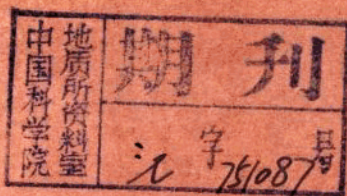 中国科学院
地质所资料室
期刊
字号
751087